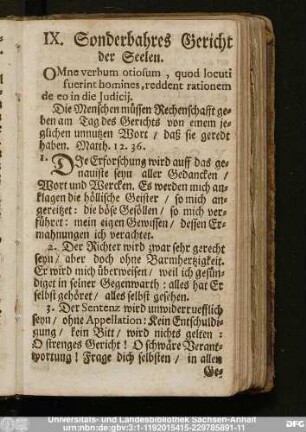 IX. Sonderbahres Gericht
der Seelen.
OMne verbum otiosum, quod locuti
fuerint homines, reddent rationem
de eo in die Judicij.
Die Menschen müssen Rechenschafft ge-
ben am Tag des Gerichts von einem je-
glichen unnutzen Wort / daß sie geredt
haben. Matth. 12. 36.
1. DJe Erforschung wird auff das ge-
nauiste seyn aller Gedancken /
Wort und Wercken. Es werden mich an-
klagen die höllische Geister / so mich an-
gereitzet: die böse Gesöllen / so mich ver-
führet: mein eigen Gewissen / dessen Er-
mahnungen ich verachtet.
2. Der Richter wird zwar sehr gerecht
seyn / aber doch ohne Barmhertzigkeit.
Er wird mich überweisen / weil ich gesün-
diget in seiner Gegenwarth: alles hat Er
selbst gehöret / alles selbst gesehen.
3. Der Sentenz wird unwiderruefflich
seyn / ohne Appellation: Kein Entschuldi-
gung / kein Bitt / wird nichts gelten:
O strenges Gericht! O schwäre Verant-
wortung! Frage dich selbsten / in allen
Ge-
Universitäts- und Landesbibliothek Sachsen-Anhalt
urn:nbn:de:gbv:3:1-1192015415-229785891-11
DFG